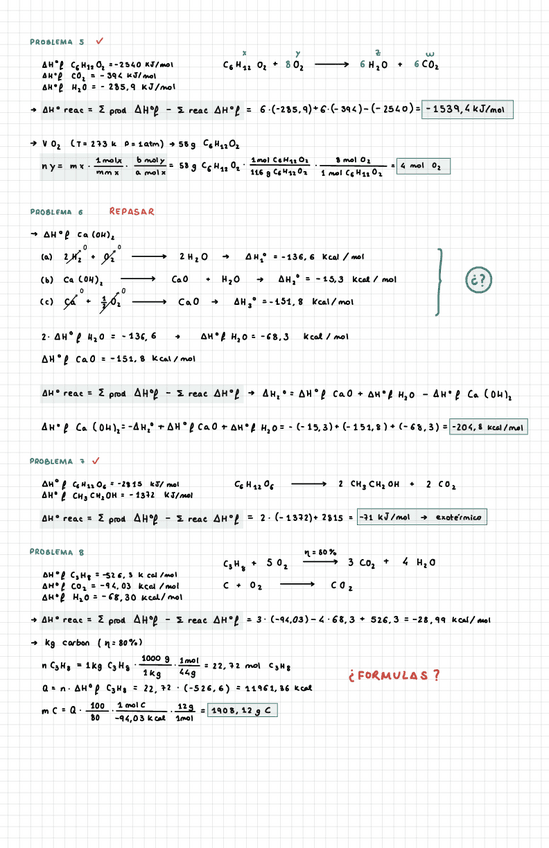 PROBLEMA 5 ✓
ΔHº f C₆H₁₂O₂ = -2540 KJ/mol
ΔHº f CO₂ = -394 KJ/mol
ΔHº f H₂O = -285,9 KJ/mol
x y z w
C₆H₁₂O₂ + 8O₂ ⟶ 6H₂O + 6CO₂
→ ΔHº reac = Σ prod ΔHºf - Σ reac ΔHºf = 6·(-285,9)+6·(-394)-(-2540) = -1539,4 KJ/mol
→ V O₂ (T=273 K P=1atm) → 58g C₆H₁₂O₂
n y = m x · 1molx/mm x · b moly/a molx = 58g C₆H₁₂O₂ · 1mol C₆H₁₂O₂/116g C₆H₁₂O₂ · 8 mol O₂/1 mol C₆H₁₂O₂ = 4 mol O₂
PROBLEMA 6 REPASAR
→ ΔHº f Ca(OH)₂
(a) 2H₂ 0 + O₂ 0 ⟶ 2H₂O → ΔH₁º = -136,6 Kcal/mol
(b) Ca(OH)₂ ⟶ CaO + H₂O → ΔH₂º = -15,3 Kcal/mol
(c) Ca 0 + 1/2 O₂ 0 ⟶ CaO → ΔH₃º = -151,8 Kcal/mol
¿?
2·ΔHº f H₂O = -136,6 → ΔHº f H₂O = -68,3 Kcal/mol
ΔHº f CaO = -151,8 Kcal/mol
ΔHº reac = Σ prod ΔHºf - Σ reac ΔHºf → ΔH₂º = ΔHº f CaO + ΔHº f H₂O - ΔHº f Ca(OH)₂
ΔHº f Ca(OH)₂ = -ΔH₂º + ΔHº f CaO + ΔHº f H₂O = -(-15,3)+(-151,8)+(-68,3) = -204,8 Kcal/mol
PROBLEMA 7 ✓
ΔHº f C₆H₁₂O₆ = -2815 KJ/mol
ΔHº f CH₃CH₂OH = -1372 KJ/mol
C₆H₁₂O₆ ⟶ 2 CH₃CH₂OH + 2 CO₂
ΔHº reac = Σ prod ΔHºf - Σ reac ΔHºf = 2·(-1372)+2815 = -71 KJ/mol → exotérmico
PROBLEMA 8
η = 80%
C₃H₈ + 5 O₂ ⟶ 3 CO₂ + 4 H₂O
C + O₂ ⟶ CO₂
ΔHº f C₃H₈ = -526,3 Kcal/mol
ΔHº f CO₂ = -94,03 Kcal/mol
ΔHº f H₂O = -68,30 Kcal/mol
→ ΔHº reac = Σ prod ΔHºf - Σ reac ΔHºf = 3·(-94,03)-4·68,3 + 526,3 = -28,99 KJ/mol
→ Kg carbon (η = 80%)
n C₃H₈ = 1Kg C₃H₈ · 1000 g/1Kg · 1mol/44g = 22,72 mol C₃H₈
Q = n·ΔHº f C₃H₈ = 22,72 · (-526,6) = 11961,36 Kcal
¿FORMULAS?
m C = Q · 100/80 · 1mol C/-94,03 Kcal · 12g/1mol = 1908,12 g C